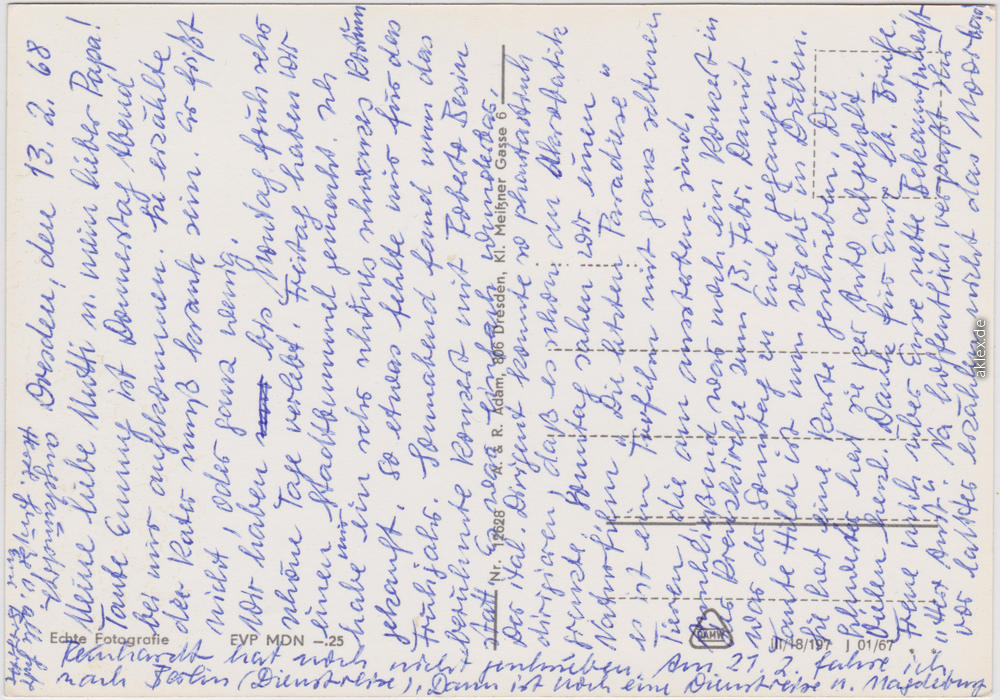 Dresden, den 13. 2. 68
Meine liebe Mutti u. mein lieber Papa!
Tante Emmy ist Donnerstag Abend
bei mir angekommen. Sie erzählte
der Kater muß krank sein. Er frißt
nicht oder ganz wenig.
Wir haben bis Montag früh sehr
schöne Tage verlebt. Freitag haben wir
einen Stadtbummel gemacht. Ich
habe mir ein sehr schönes schwarzes Kostüm
gekauft. So etwas fehlte mir für das
Frühjahr. Sonnabend fand nun das
berühmte Konzert mit Roberto Benzi
statt. Es war einfach wunderbar.
Das ital. Dirigent konnte so phantastisch
dirigieren, daß es schon an Akrobatik
grenzte. Sonntag sahen wir einen
Naturfilm „Die letzten Paradiese"
es ist ein Tierfilm mit ganz seltenen
Tieren die am aussterben sind,
anschließend war noch ein Konzert in
der Kreuzkirche zum 13. Febr. Damit
war der Sonntag zu Ende gegangen.
Tante Hilde ist nun wieder in Düben.
Sie hat eine Karte geschrieben. Die
hat sie per Auto abgeholt.
Vielen herzl. Dank für Eure lb. Briefe.
Freue mich über Eure nette Bekanntschaft
"Herr Amt". Na hoffentlich verpaßt Ihr
vor lauter erzählen nicht das
Reinhardt hat noch nicht geschrieben. Am 21. 2. fahre ich
nach Berlin (Dienstreise), Dann ist noch eine Dienstreise n. Magdeburg
Nr. 12628 A. & R. Adam, 806 Dresden, Kl. Meißner Gasse 6
Echte Fotografie
EVP MDN —.25
DAMW
III/18/197 J 01/67
aklex.de